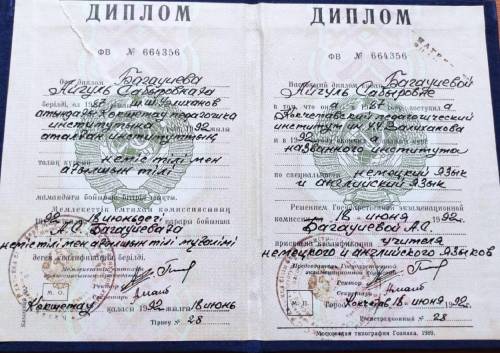 ДИПЛОМ
ФВ № 664356
Осы диплом Багаушева
Айгуль Сабыровнаға
берілді, ол 1987 ж Ш.Уәлиханов
атындағы Көкшетау педагогика
институтына 1992 жылы
аталған институттың
толық курсын
неміс тілі мен
ағылшын тілі
мамандығы бойынша бітіріп шықты.
Мемлекеттік емтихан комиссиясының
1992 18 июньдегі
А.С. Багаушеваға
неміс тілі мен ағылшын тілі мұғалімі
деген квалификация берілді.
Ректор
Секретарь
М. О.
Көкшетау қаласы 1992 жылғы 18 июнь
Тіркеу № 28
ДИПЛОМ
ФВ № 664356
Настоящий диплом Багаушевой
Айгуль Сабыровне
в том, что она в 1987 году поступила в
Кокчетавский педагогический
институт им. Ч.Ч. Валиханова
и в 1992
названного института
по специальности немецкий язык
и английский язык
Решением Государственной экзаменационной
комиссии от 18 июня 1992 г.
Багаушевой А.С.
присвоена квалификация учителя
немецкого и английского языков
Председатель Государственной
экзаменационной комиссии
Ректор
Секретарь
М. П.
Город Кокчетав 18 июня 1992 г.
Регистрационный № 28
Московская типография Гознака. 1989.